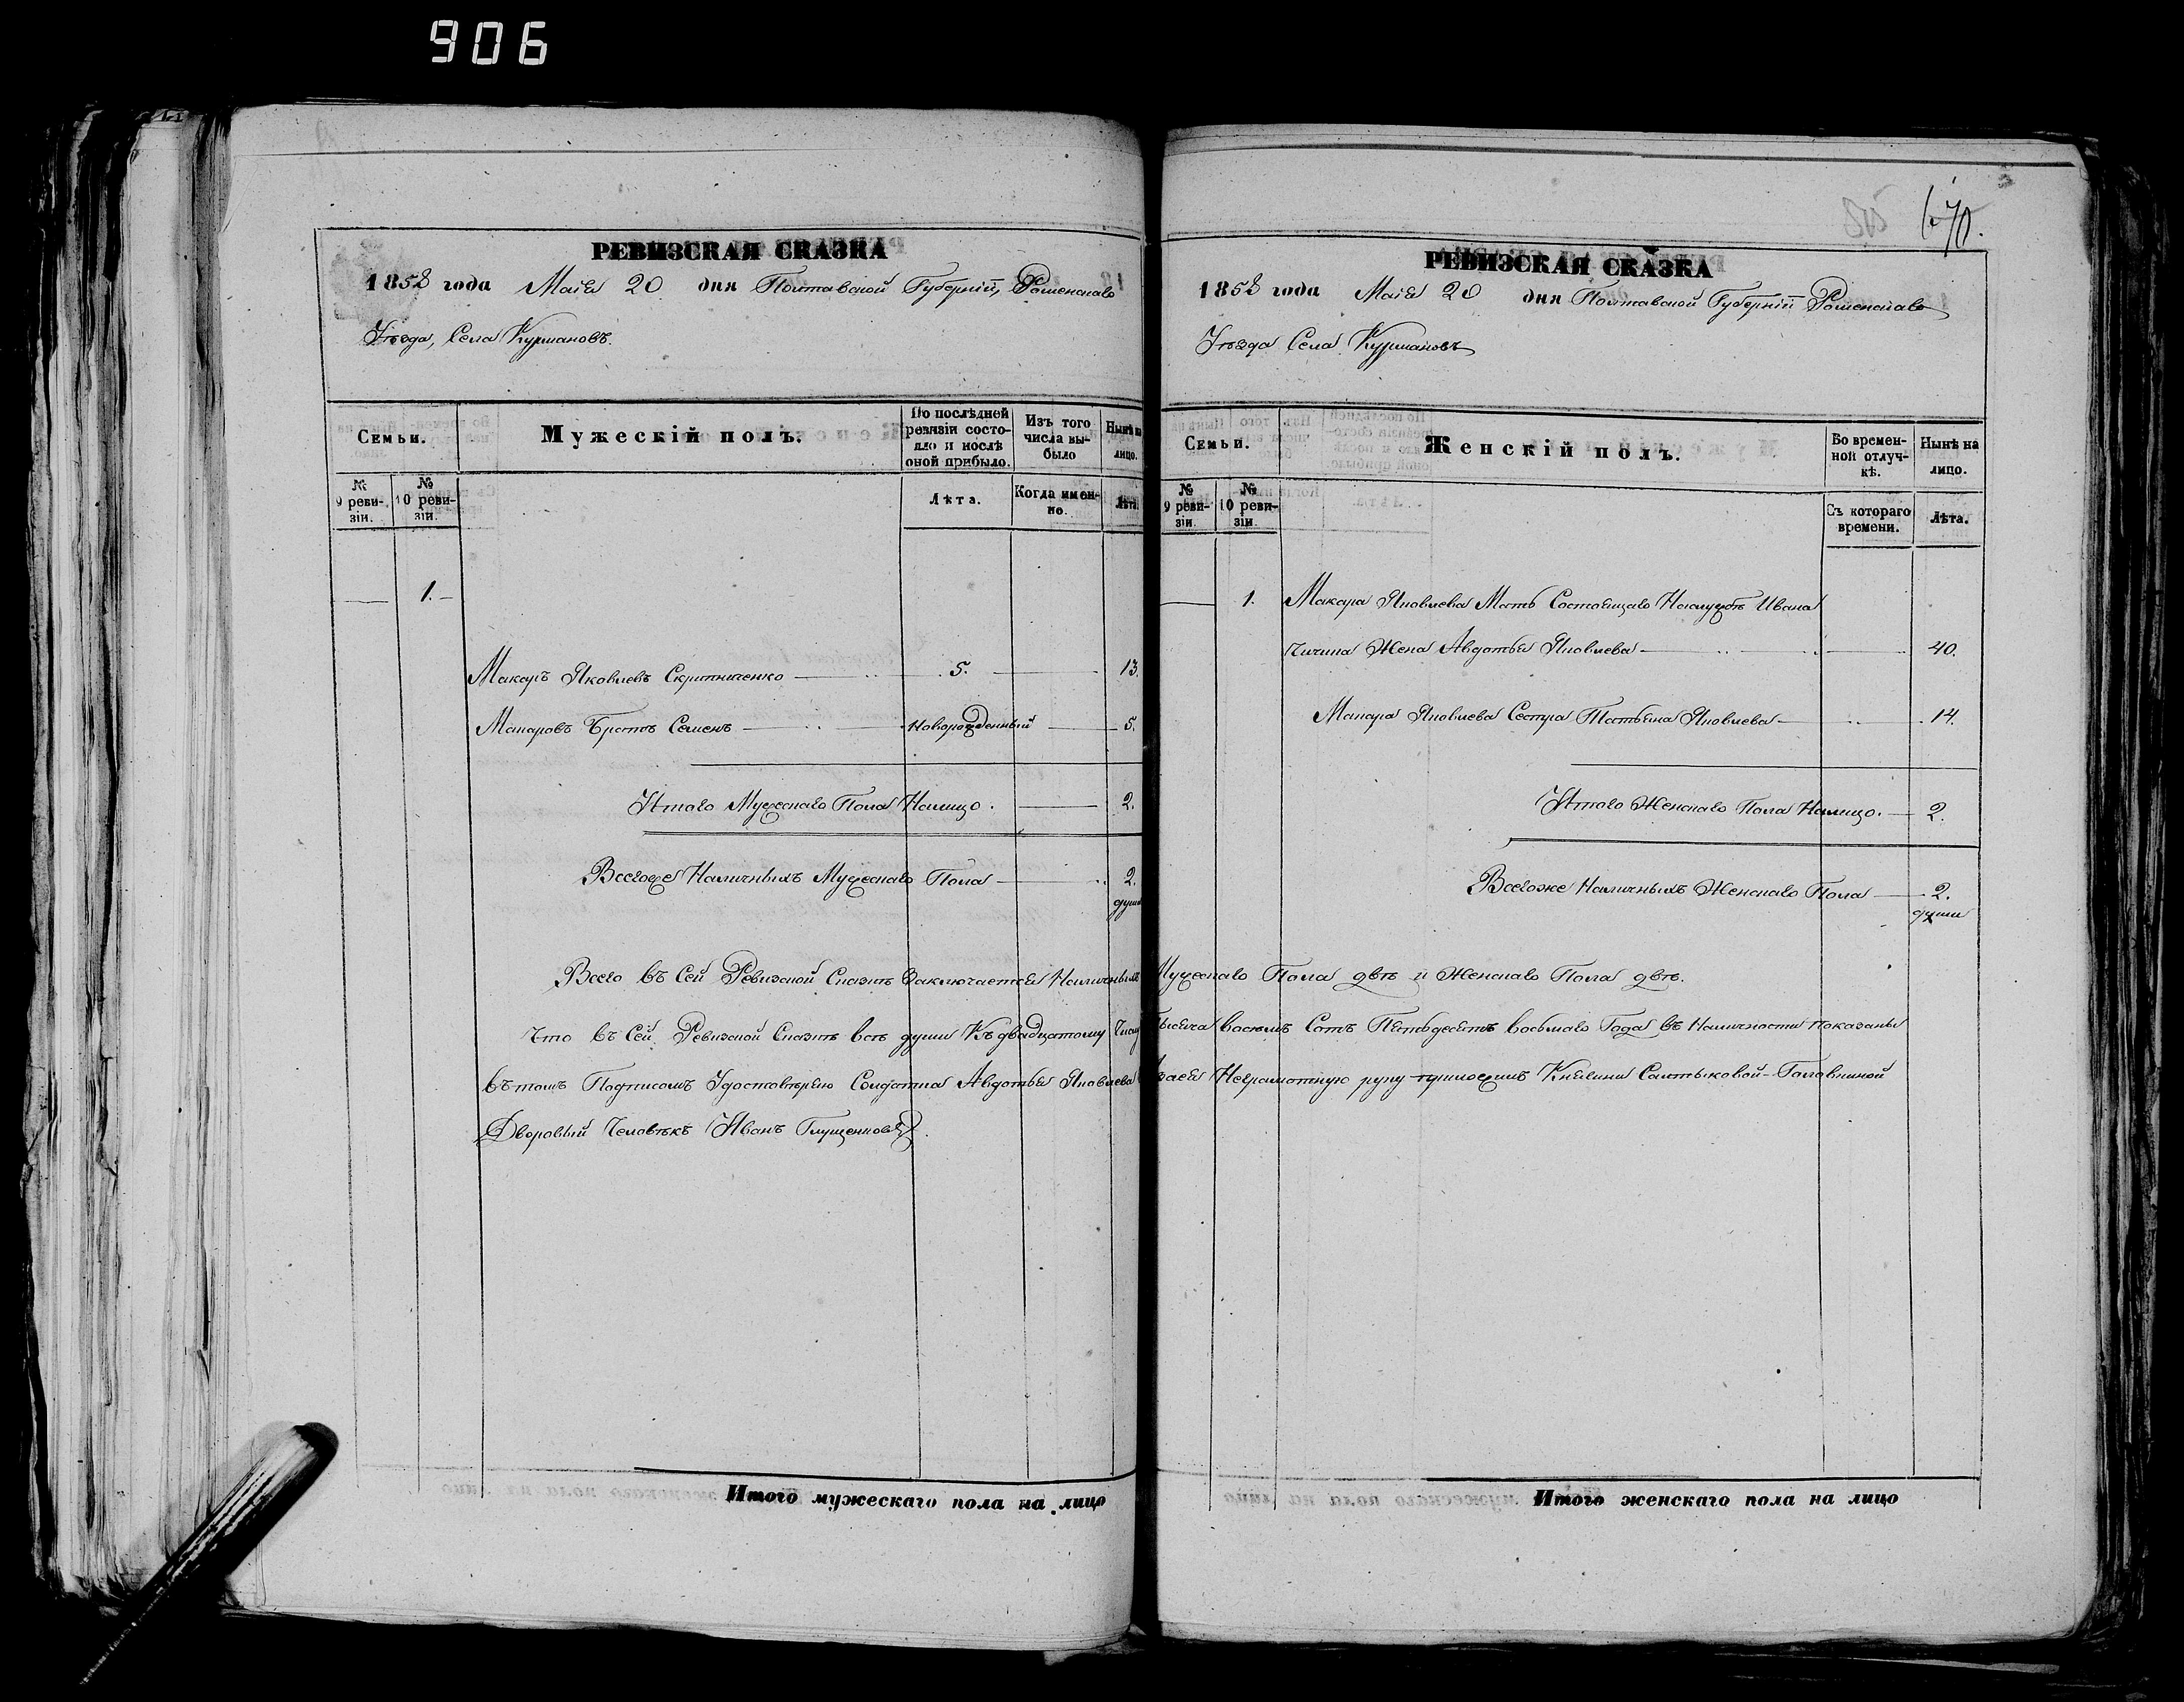 906
РЕВИЗСКАЯ СКАЗКА
1858 года Маія 20 дня Полтавской Губерніи, Роменскаго
Уѣзда, Села Курмановъ.
Семьи.
Мужескій полъ.
По послѣдней ревизіи состояло и послѣ оной прибыло.
Изъ того числа выбыло
Нынѣ на лицо.
№ 9 ревизіи.
№ 10 ревизіи.
Лѣта.
Когда именно.
Лѣта.
1.
Макаръ Яковлевъ Скрипниченко 5. 13.
Макаровъ Братъ Семенъ Новорожденный 5.
Итого Мужескаго Пола Налицо. 2.
Всегоже Наличныхъ Мужескаго Пола 2.
души
Итого мужескаго пола на лицо
70.
РЕВИЗСКАЯ СКАЗКА
1858 года Маія 20 дня Полтавской Губерніи Роменскаго
Уѣзда Села Курмановъ
Семьи.
Женскій полъ.
Во временной отлучкѣ.
Нынѣ на лицо.
№ 9 ревизіи.
№ 10 ревизіи.
Съ котораго времени.
Лѣта.
1. Макара Яковлева Мать Состоящаго Наслужбѣ Ивана
Жена Авдотья Яковлева 40.
Макара Яковлева Сестра Татьяна Яковлева 14.
Итого Женскаго Пола Налицо. 2.
Всегоже Наличныхъ Женскаго Пола 2.
души
Всего въ Сей Ревизской Сказкѣ Заключается Наличныхъ Мужескаго Пола двѣ и Женскаго Пола двѣ.
Что въ Сей Ревизской Сказкѣ всѣ души Къ двадцатому Тысяча восемь Сотъ Пятьдесятъ восьмаго Года въ Наличности показаны
вътомъ Подписомъ Удостовѣряю Солдатка Авдотья Яковлева Неграмотную руку приложилъ Княгини Салтыковой-Головкиной
Дворовый Человѣкъ Иванъ Глущенковъ.
Итого женскаго пола на лицо